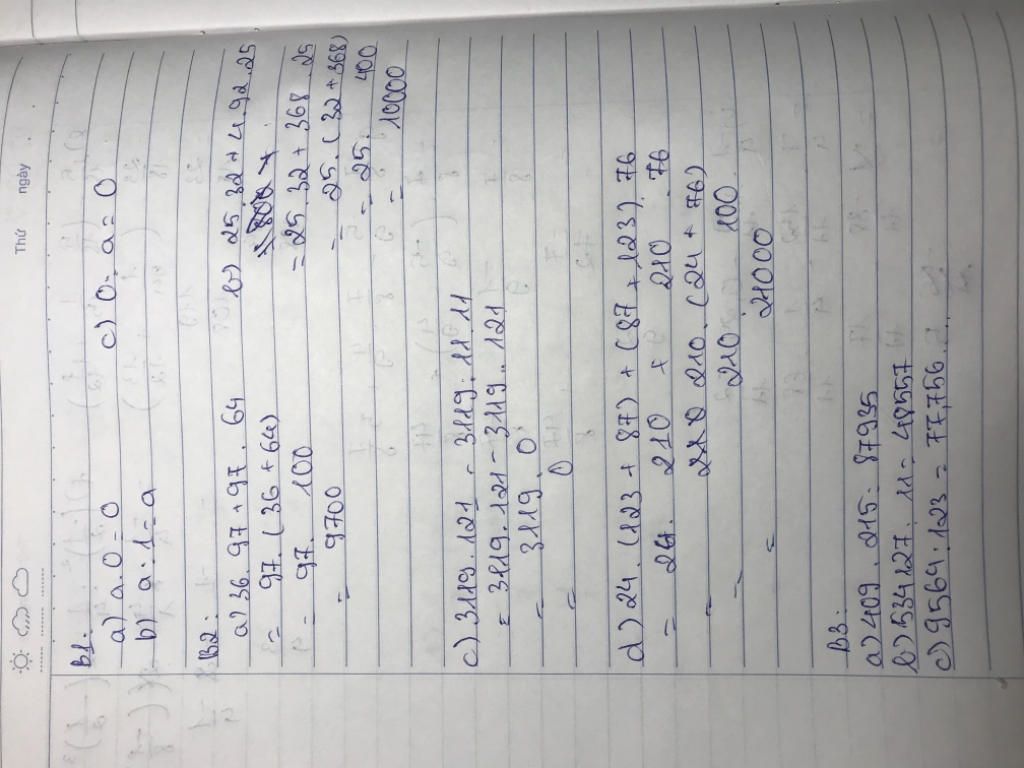 Thứ ngày
B1:
a) a.0 = 0 c) 0 : a = 0
b) a : 1 = a
B2:
a) 36.97 + 97.64 b) 25.32 + 4.92.25
= 97.(36 + 64) = 25.32 + 368.25
= 97.100 = 25.(32 + 368)
= 9700 = 25.400
= 10000
c) 3119.121 - 3119.11.11
= 3119.121 - 3119.121
= 3119.0
= 0
d) 24.(123 + 87) + (87 + 123).76
= 24.210 + 210.76
= 210.(24 + 76)
= 210.100
= 21000
B3:
a) 409.215 = 87935
b) 53427:11 = 4857
c) 9564:123 = 77,756